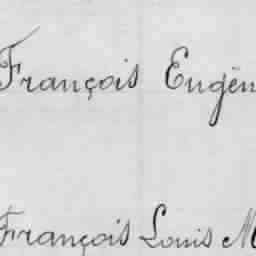 François Eugèn
François Louis M